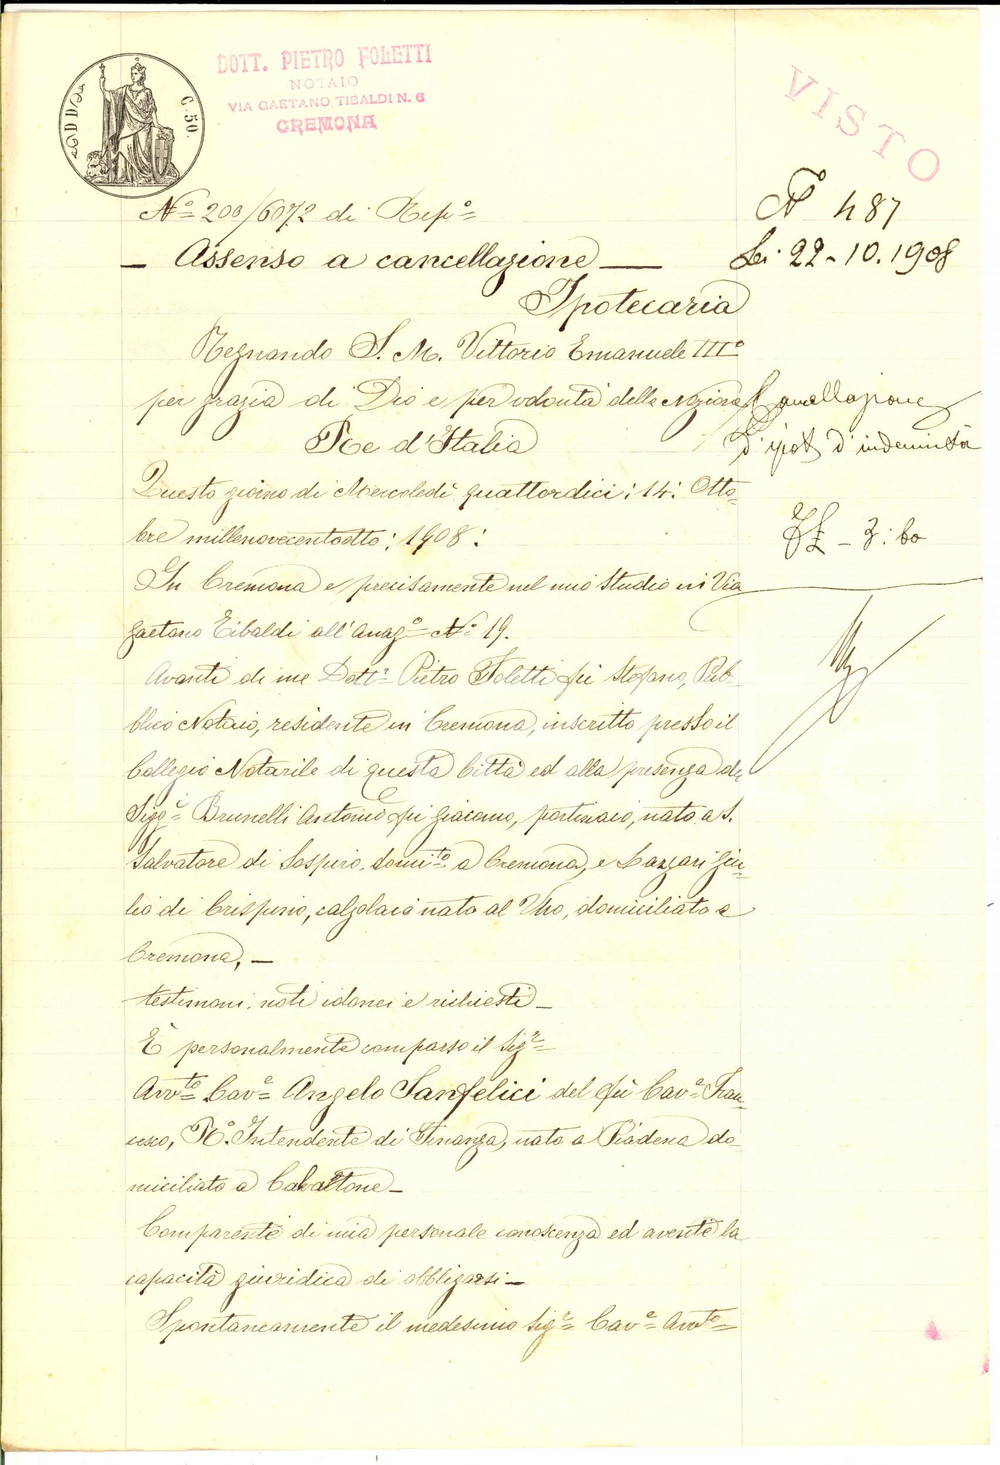 DOTT. PIETRO FOLETTI
NOTAIO
VIA GAETANO TIBALDI N. 6
CREMONA
VISTO
C. 50.
Nº 200/6072 di Repº
Nº 487
Li 22-10.1908
— Assenso a cancellazione —
Ipotecaria
Regnando S. M. Vittorio Emanuele IIIº
per grazia di Dio e per volontà della Nazione
Re d'Italia
Cancellazione
d'ipot d'indennità
Questo giorno di Mercoledì quattordici: 14: Otto-
bre millenovecentootto: 1908:
In Cremona e precisamente nel mio Studio in Via
Gaetano Tibaldi all'Anagº Nº 19.
Avanti di me Dottr Pietro Foletti fù Stefano, Pub-
blico Notaio, residente in Cremona, inscritto presso il
Collegio Notarile di questa Città ed alla presenza dei
Sigri Brunelli Antonio fù Giacomo, portinaio, nato a S.
Salvatore di Sospiro, domto a Cremona, e Lazzari Giu-
lio di Crispino, calzolaio nato al Vho, domiciliato a
Cremona, —
testimoni noti idonei e richiesti —
È personalmente comparso il Sigr
Avvto Cave Angelo Sanfelici del fù Cave Fran-
cesco, Rº Intendente di Finanza, nato a Piadena do-
miciliato a
Comparente di mia personale conoscenza ed avente la
capacità giuridica di obbligarsi —
Spontaneamente il medesimo Sigr Cave Avvto